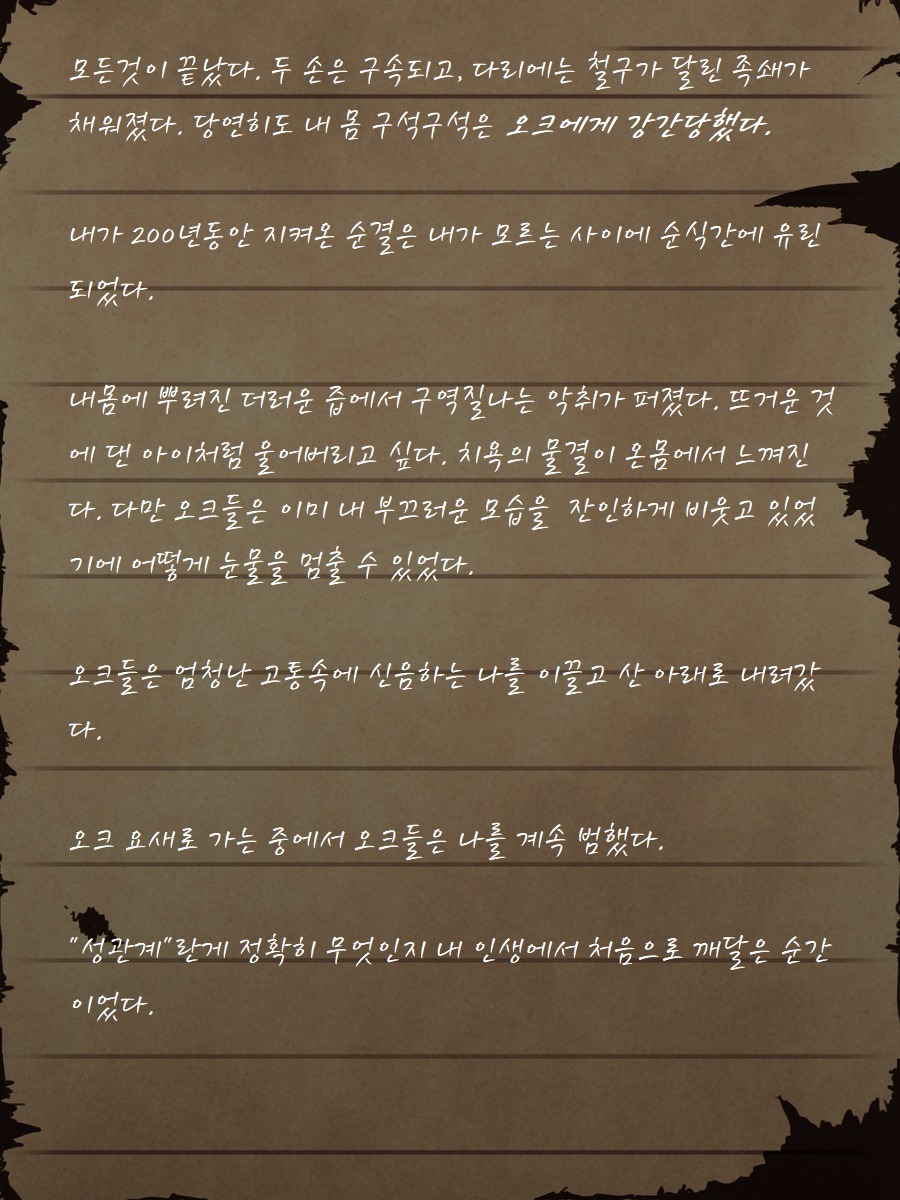 모든것이 끝났다. 두 손은 구속되고, 다리에는 철구가 달린 족쇄가
채워졌다. 당연히도 내 몸 구석구석은 오크에게 강간당했다.
내가 200년동안 지켜온 순결은 내가 모르는 사이에 순식간에 유린
되었다.
내몸에 뿌려진 더러운 즙에서 구역질나는 악취가 퍼졌다. 뜨거운 것
에 댄 아이처럼 울어버리고 싶다. 치욕의 물결이 온몸에서 느껴진
다. 다만 오크들은 이미 내 부끄러운 모습을 잔인하게 비웃고 있었
기에 어떻게 눈물을 멈출 수 있었다.
오크들은 엄청난 고통속에 신음하는 나를 이끌고 산 아래로 내려갔
다.
오크 요새로 가는 중에서 오크들은 나를 계속 범했다.
"성관계"란게 정확히 무엇인지 내 인생에서 처음으로 깨달은 순간
이었다.